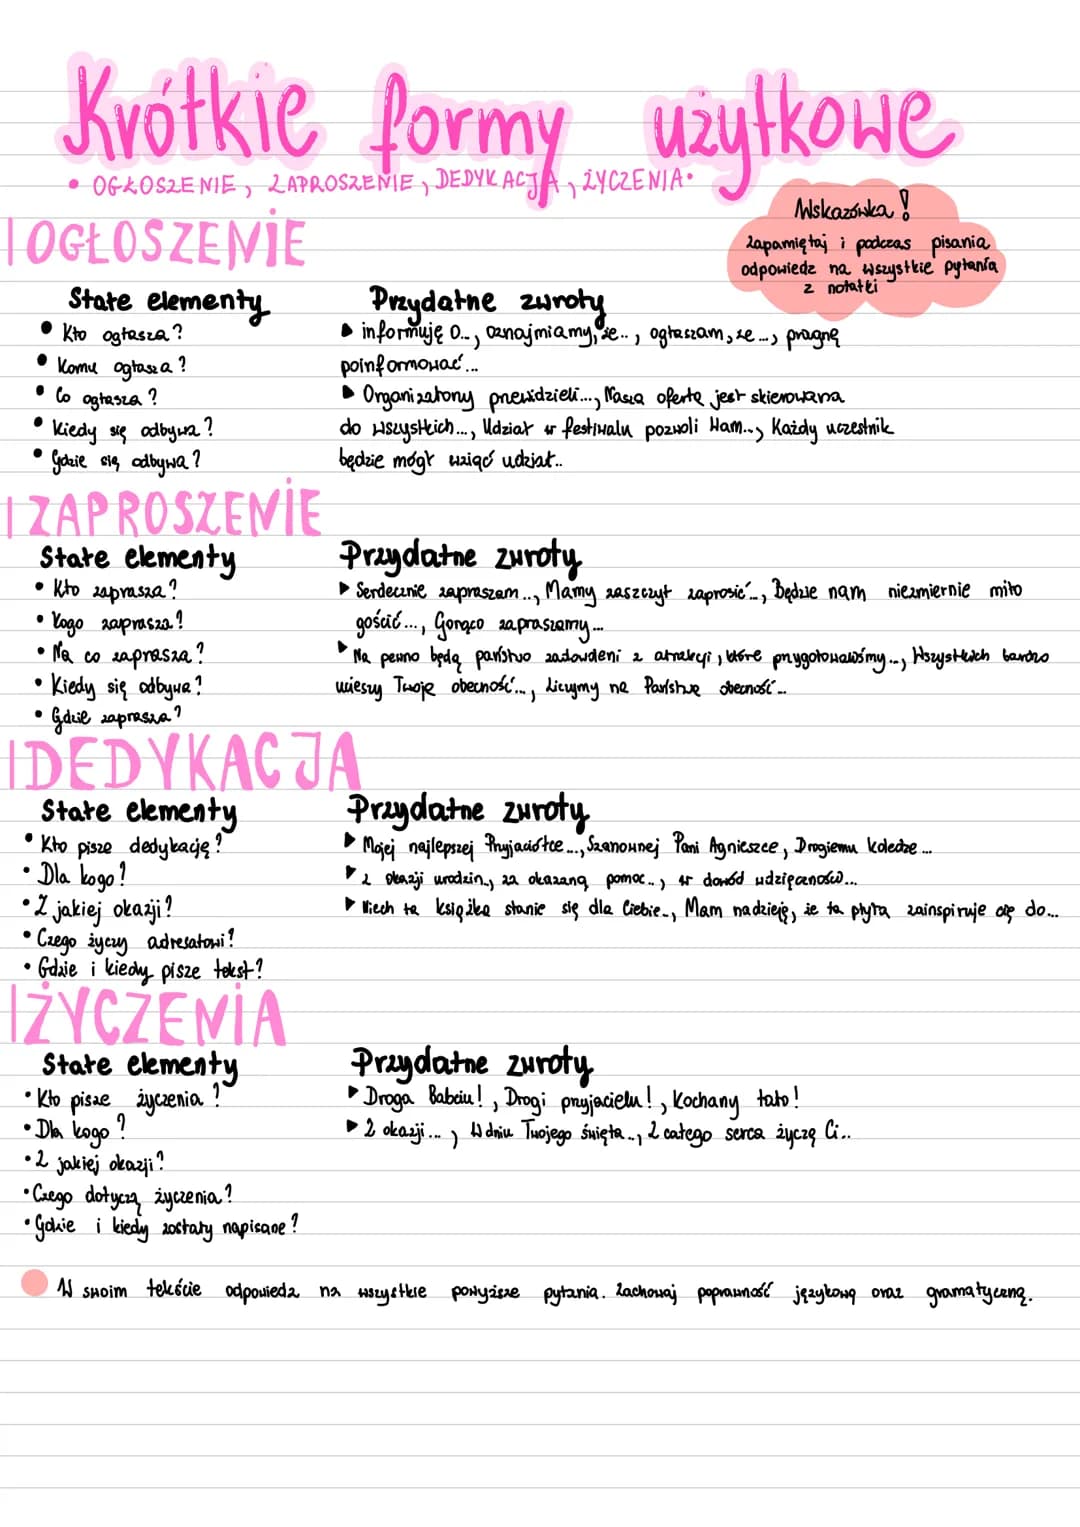 Krótkie formy użytkowe
• OGŁOSZENIE, ZAPROSZENIE, DEDYKACJA, ŻYCZENIA•
Wskazówka!
Zapamiętaj i podczas pisania
odpowiedz na wszystkie pytania
z notatki
OGŁOSZENIE
Stałe elementy
• Kto ogłasza?
• Komu ogłasza?
• Co ogłasza?
• Kiedy się odbywa?
• Gdzie się odbywa?
Przydatne zwroty
▶ informuję o..., oznajmiamy, że..., ogłaszam, że..., pragnę
poinformować...
▶ Organizatorzy przewidzieli..., Nasza oferta jest skierowana
do wszystkich..., Udział w festiwalu pozwoli Wam..., Każdy uczestnik
będzie mógł wziąć udział..
ZAPROSZENIE
Stałe elementy
• Kto zaprasza?
• Kogo zaprasza?
• Na co zaprasza?
• Kiedy się odbywa?
• Gdzie zaprasza?
Przydatne zwroty
▶ Serdecznie zapraszam.., Mamy zaszczyt zaprosić..., Będzie nam niezmiernie miło
gościć..., Gorąco zapraszamy...
▶ Na pewno będą państwo zadowoleni z atrakcji, które przygotowaliśmy.., Wszystkich bardzo
ucieszy Twoja obecność..., Liczymy na Państwa obecność...
DEDYKACJA
Stałe elementy
• Kto pisze dedykację?
• Dla kogo?
• Z jakiej okazji?
• Czego życzy adresatowi?
• Gdzie i kiedy pisze tekst?
Przydatne zwroty
▶ Mojej najlepszej Przyjaciółce..., Szanownej Pani Agnieszce, Drogiemu koledze...
▶ z okazji urodzin.., za okazaną pomoc.., w dowód wdzięczności...
▶ Niech ta książka stanie się dla Ciebie.., Mam nadzieję, że ta płyta zainspiruje cię do...
ŻYCZENIA
Stałe elementy
• Kto pisze życzenia?
• Dla kogo?
• Z jakiej okazji?
• Czego dotyczą życzenia?
• Gdzie i kiedy zostały napisane?
Przydatne zwroty
▶ Droga Babciu!, Drogi przyjacielu!, Kochany tato!
▶ Z okazji..., W dniu Twojego święta.., Z całego serca życzę Ci..
W swoim tekście odpowiedz na wszystkie powyższe pytania. Zachowaj poprawność językową oraz gramatyczną.